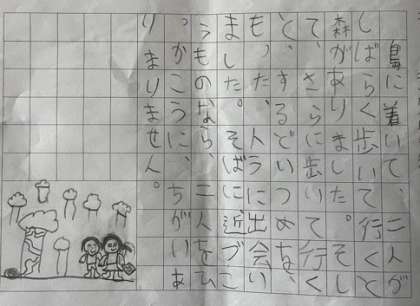 島に着いて、二人が
しばらく歩いて、行くと
森がありました。そし
て、さらに歩いて行く
と、するどいつめを、
もった、人ラに出会い
ました。そばに近づこ
うものなら、二人をひ
っかこうに、ちがいあ
りまりません。